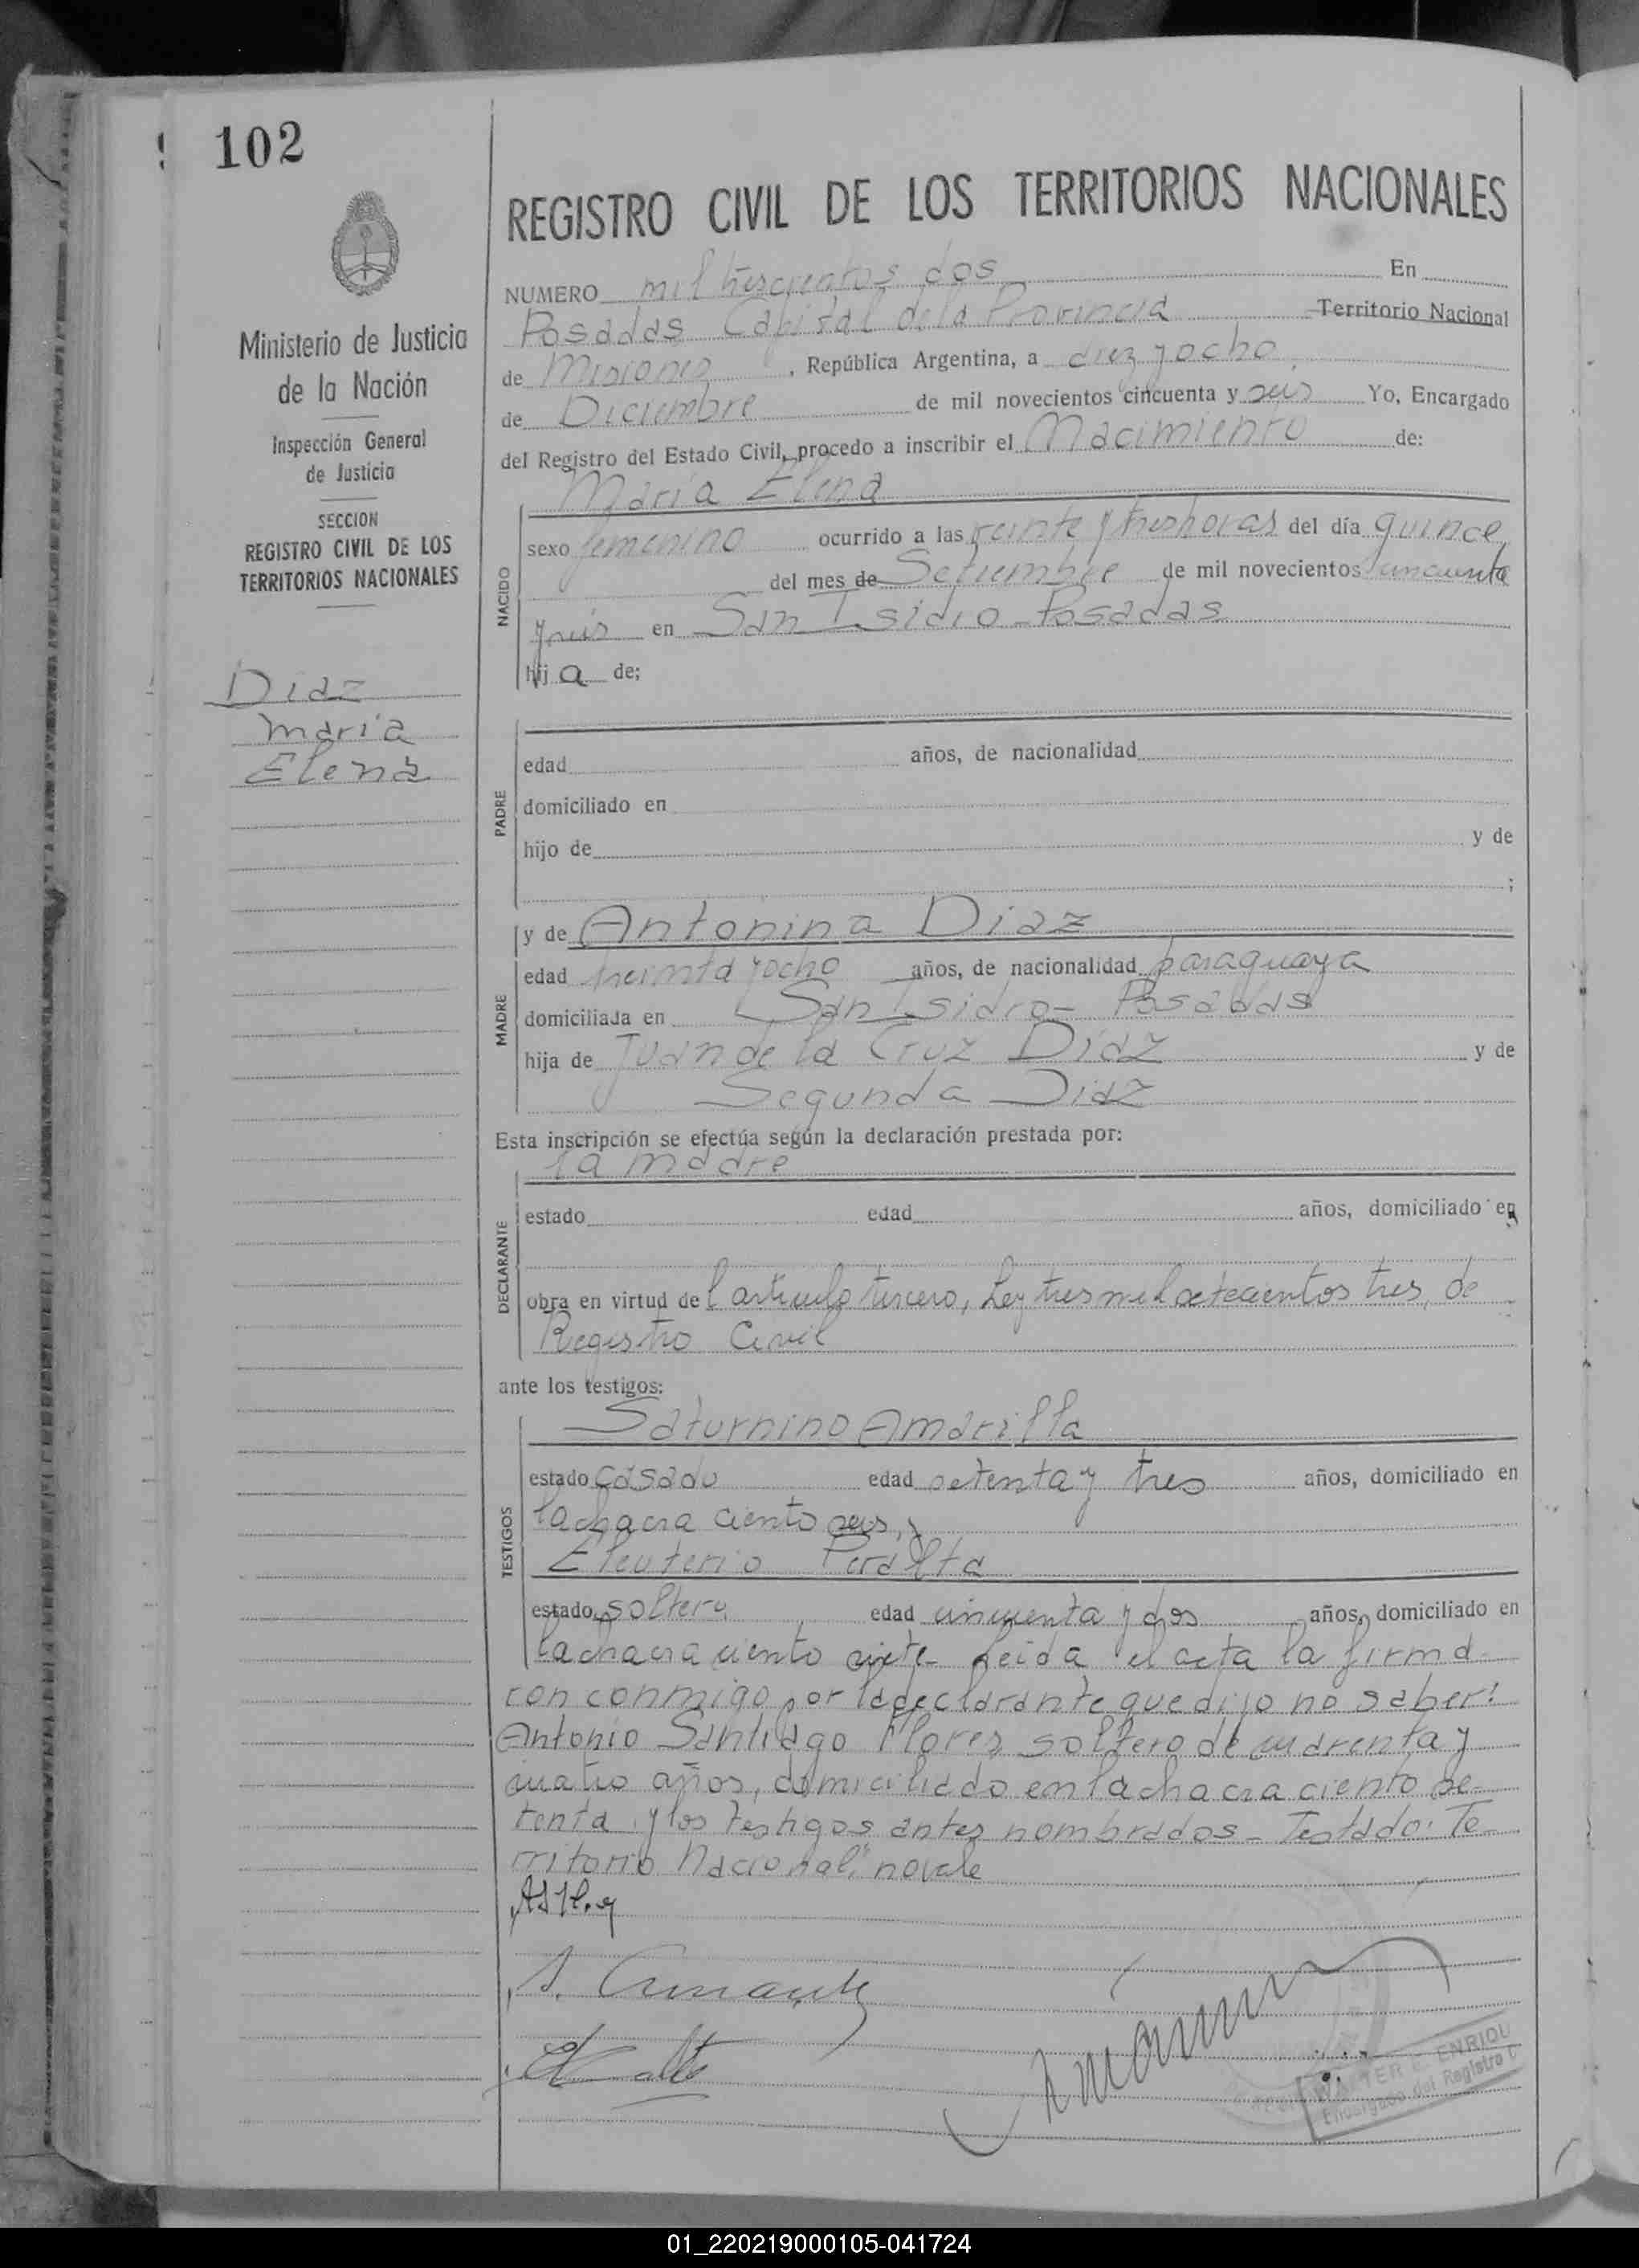 102
Ministerio de Justicia
de la Nación
Inspección General
de Justicia
SECCION
REGISTRO CIVIL DE LOS
TERRITORIOS NACIONALES
Diaz
Maria
Elena
REGISTRO CIVIL DE LOS TERRITORIOS NACIONALES
NUMERO mil trescientos dos En
Posadas Capital de la Provincia Territorio Nacional
de Misiones, República Argentina, a diez y ocho
de Diciembre de mil novecientos cincuenta y seis Yo, Encargado
del Registro del Estado Civil, procedo a inscribir el Nacimiento de:
Maria Elena
NACIDO
sexo femenino ocurrido a las veinte y tres horas del día quince
del mes de Setiembre de mil novecientos cincuenta
y seis en San Isidro - Posadas
hij a de;
PADRE
edad años, de nacionalidad
domiciliado en
hijo de y de
;
MADRE
y de Antonina Diaz
edad treinta y ocho años, de nacionalidad paraguaya
domiciliada en San Isidro - Posadas
hija de Juan de la Cruz Diaz y de
Segunda Diaz
Esta inscripción se efectúa según la declaración prestada por:
la madre
DECLARANTE
estado edad años, domiciliado en
obra en virtud del artículo tercero, Ley tres mil setecientos tres, de
Registro Civil
ante los testigos:
TESTIGOS
Saturnino Amarilla
estado casado edad setenta y tres años, domiciliado en
la chacra ciento seis, y
Eleuterio Peralta
estado soltero edad cincuenta y dos años, domiciliado en
la chacra ciento siete - Leida el acta la firma-
ron conmigo por la declarante que dijo no saber:
Antonio Santiago Flores soltero de cuarenta y
cuatro años, domiciliado en la chacra ciento se-
tenta y los testigos antes nombrados - Testado: Te-
rritorio Nacional, "no vale
S.
ENRIQU
Encargado del Registro C
01_220219000105-041724